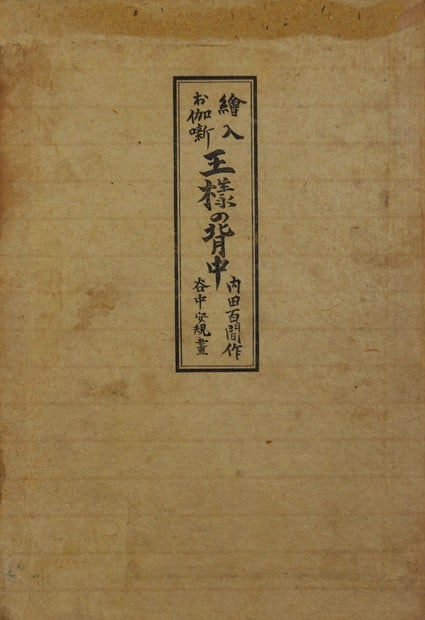 繪入
お伽噺
王樣の背中
内田百閒作
谷中安規畫